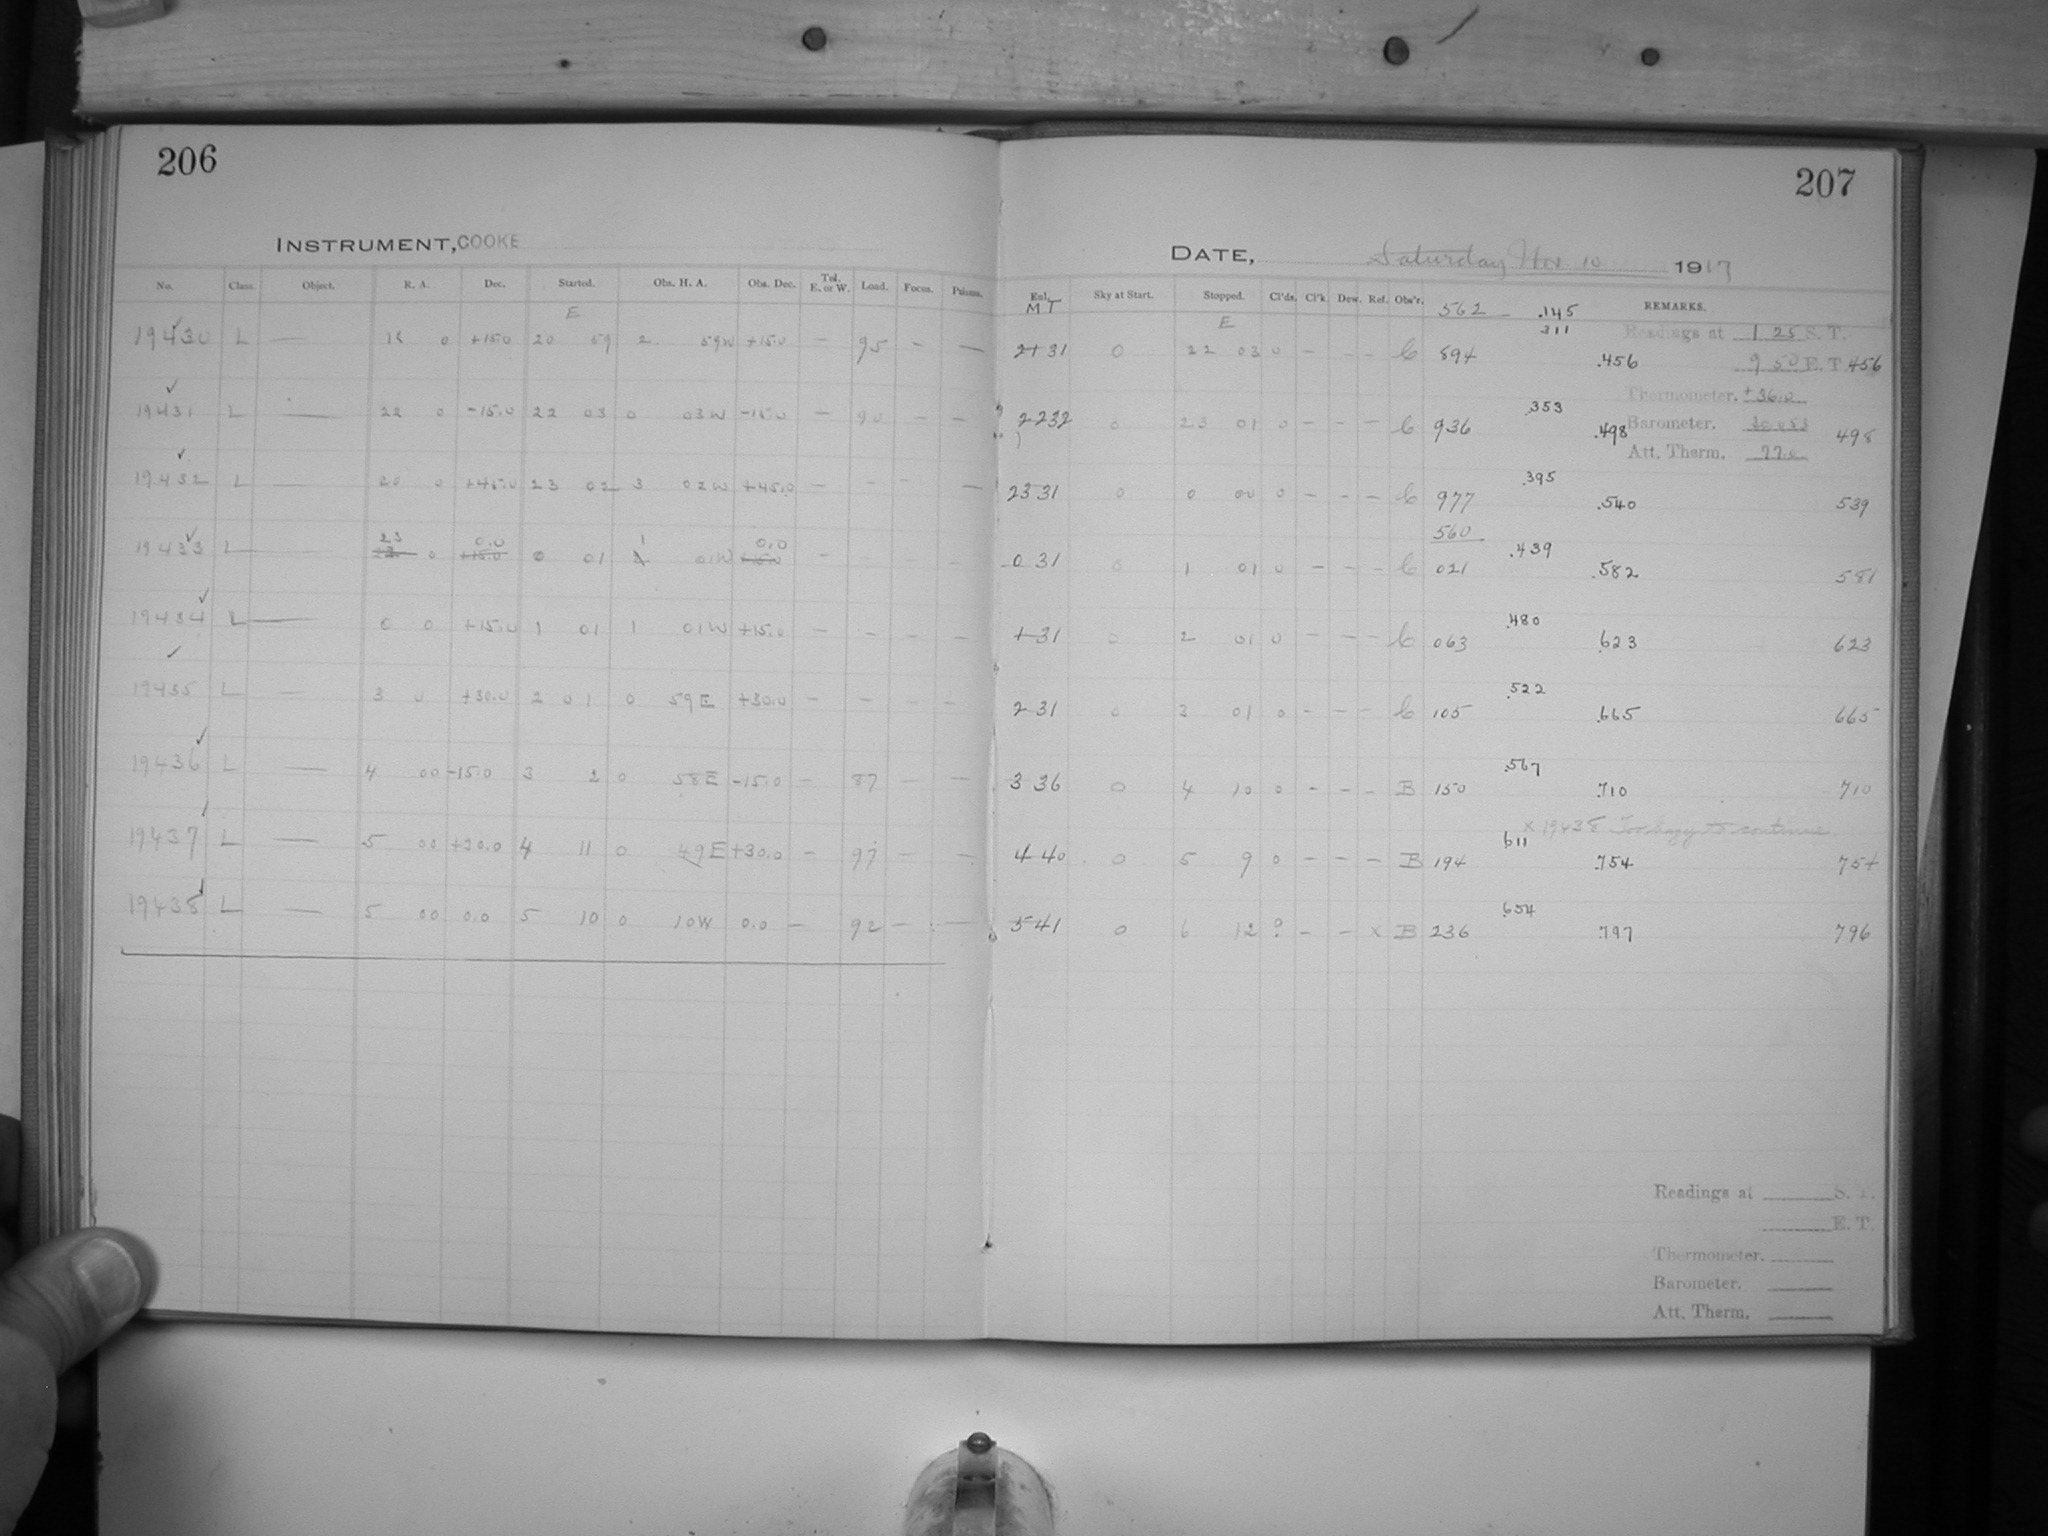 206
207
INSTRUMENT, COOKE
DATE, Saturday Nov 10 1917
No. Class. Object. R. A. Dec. Started. Obs. H. A. Obs. Dec. Tel. E. or W. Load. Focus. Prisms.
Exl. Sky at Start. Stopped. Cl'ds. Cl'k Dew. Ref. Obs'r. REMARKS.
E
MT E 562 .145
19430 L — 0 +15.0 20 59 2 59W +15.0 — 95 - — 2131 0 22 03 0 - - - C 894 .311 .456 456
Readings at 1 25 S. T.
9 50 E. T.
Thermometer. +36.0
Barometer.
Att. Therm.
19431 L — 22 0 -15.0 22 03 0 03W -15.0 — 90 - - 2232 0 23 01 0 - - - C 936 .353 .498 498
19432 L — 20 0 +45.0 23 02 3 02W +45.0 - - - — 2331 0 0 00 0 - - - C 977 .395 .540 539
560
19433 L — 23 0 0.0 0 01 1 01W 0.0 - - - - 0 31 0 1 01 0 - - - C 021 .439 .582 581
19434 L — 0 0 +15.0 1 01 1 01W +15.0 - - - - 1 31 0 2 01 0 - - - C 063 .480 .623 623
19435 L — 3 0 +30.0 2 01 0 59E +30.0 - - - - 2 31 0 3 01 0 - - - C 105 .522 .665 665
19436 L — 4 00 -15.0 3 2 0 58E -15.0 - 87 - — 3 36 0 4 10 0 - - - B 150 .567 .710 710
x 19438 Too hazy to continue.
19437 L — 5 00 4 11 0 49E +30.0 - 97 - - 4 40 0 5 9 0 - - - B 194 611 .754 754
19438 L — 5 00 0.0 5 10 0 10W 0.0 - 92 - — 5 41 0 6 12 ? - - x B 236 654 797 796
Readings at S. T.
E. T.
Thermometer.
Barometer.
Att. Therm.